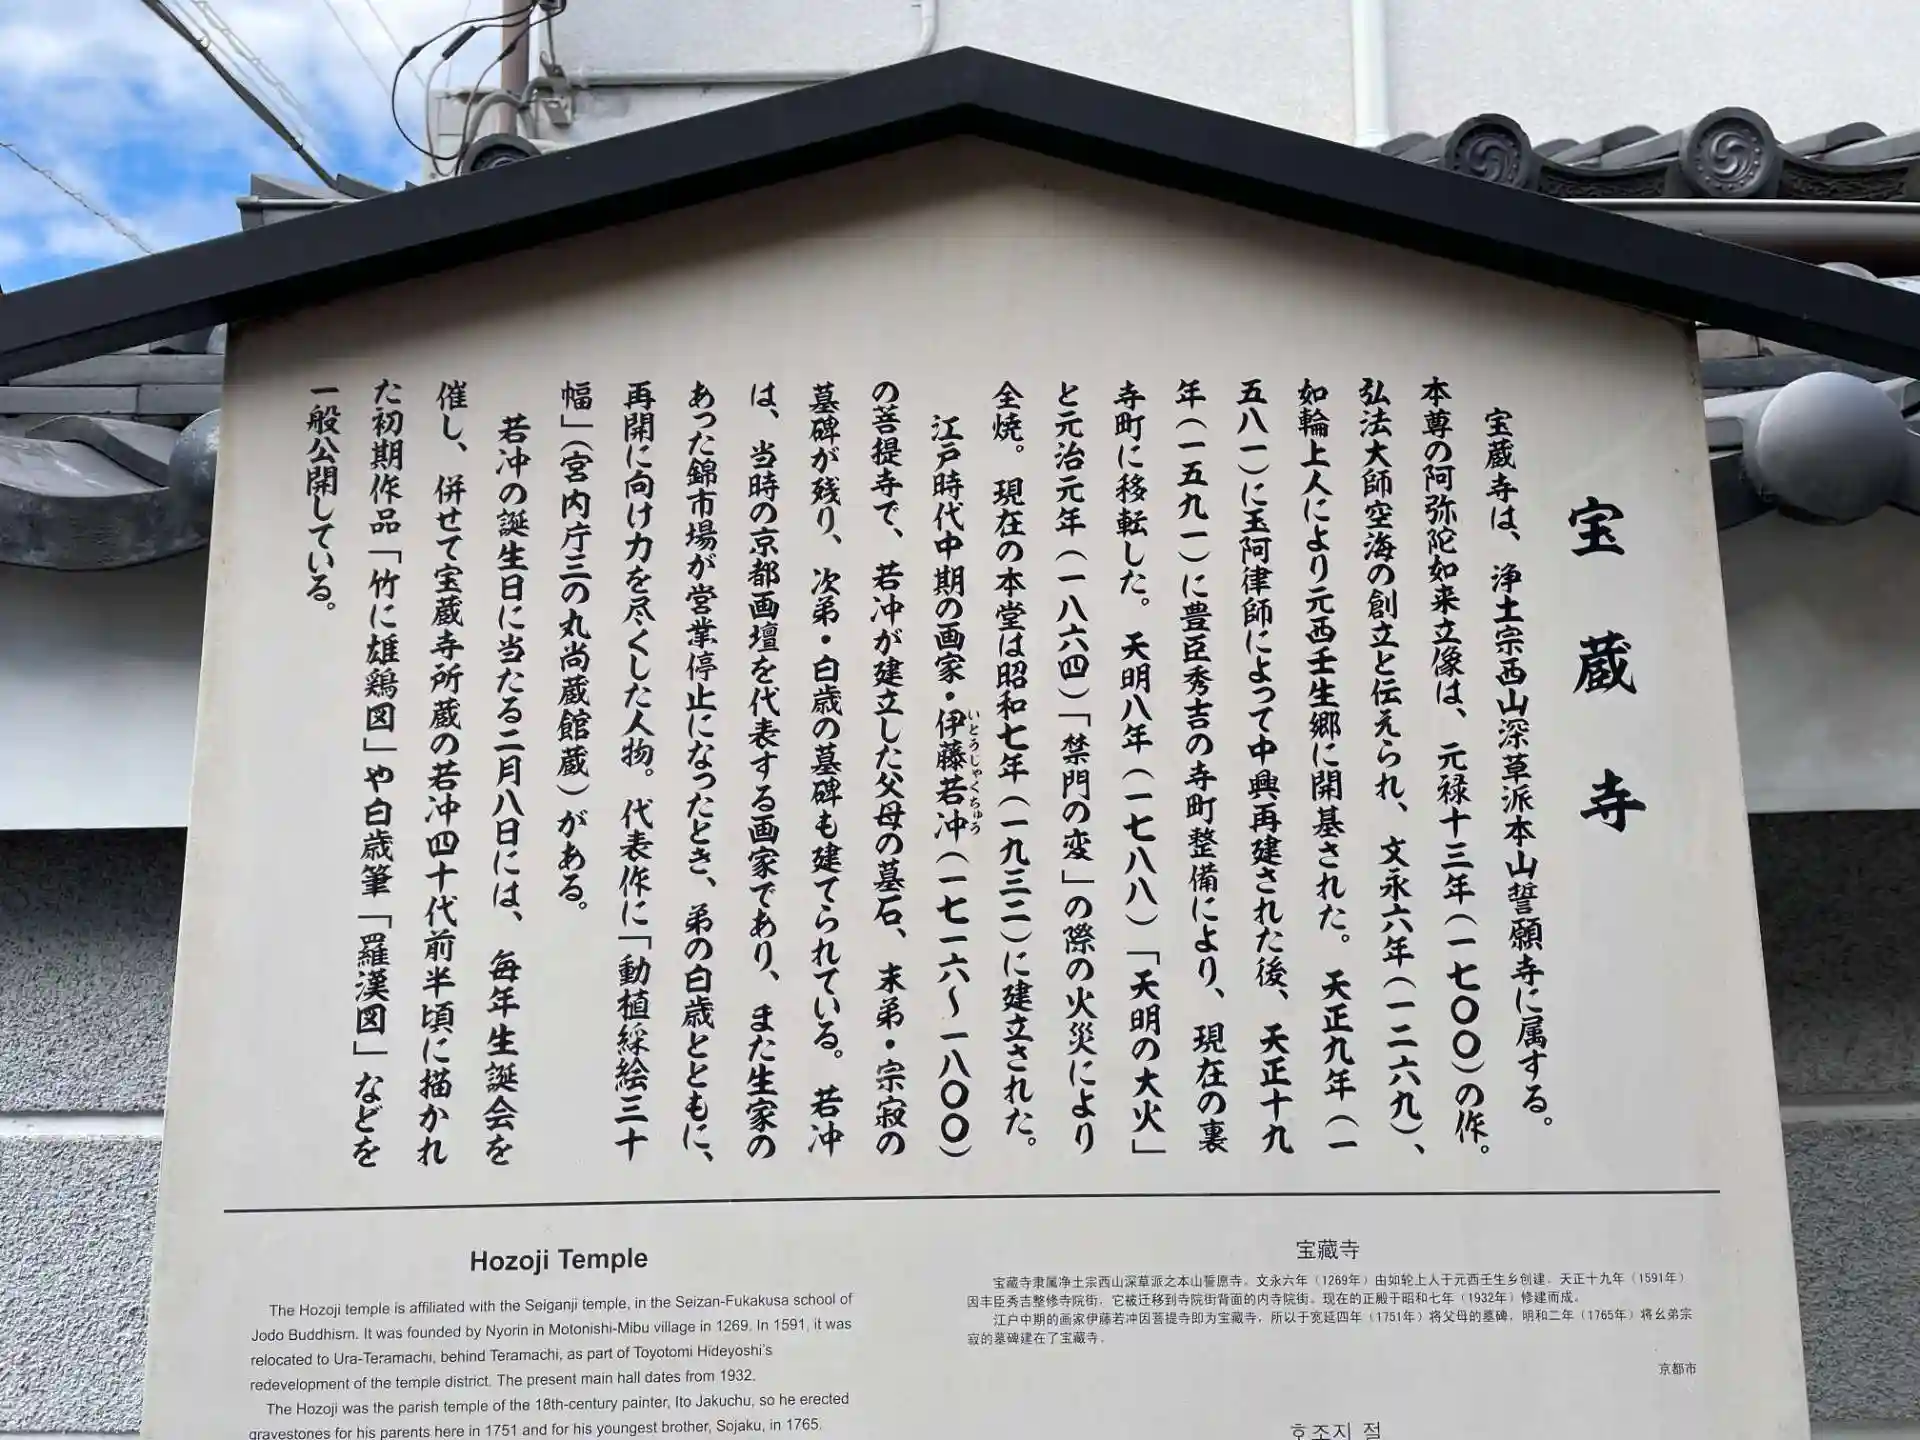 宝蔵寺
宝蔵寺は、浄土宗西山深草派本山誓願寺に属する。
本尊の阿弥陀如来立像は、元禄十三年（一七〇〇）の作。
弘法大師空海の創立と伝えられ、文永六年（一二六九）、
如輪上人により元西壬生郷に開基された。天正九年（一
五八一）に玉阿律師によって中興再建された後、天正十九
年（一五九一）に豊臣秀吉の寺町整備により、現在の裏
寺町に移転した。天明八年（一七八八）「天明の大火」
と元治元年（一八六四）「禁門の変」の際の火災により
全焼。現在の本堂は昭和七年（一九三二）に建立された。
江戸時代中期の画家・伊藤若冲（一七一六～一八〇〇）
いとうじゃくちゅう
の菩提寺で、若冲が建立した父母の墓石、末弟・宗寂の
墓碑が残り、次弟・白歳の墓碑も建てられている。若冲
は、当時の京都画壇を代表する画家であり、また生家の
あった錦市場が営業停止になったとき、弟の白歳とともに、
再開に向け力を尽くした人物。代表作に「動植綵絵三十
幅」（宮内庁三の丸尚蔵館蔵）がある。
若冲の誕生日に当たる二月八日には、毎年生誕会を
催し、併せて宝蔵寺所蔵の若冲四十代前半頃に描かれ
た初期作品「竹に雄鶏図」や白歳筆「羅漢図」などを
一般公開している。
Hozoji Temple
The Hozoji temple is affiliated with the Seiganji temple, in the Seizan-Fukakusa school of
Jodo Buddhism. It was founded by Nyorin in Motonishi-Mibu village in 1269. In 1591, it was
relocated to Ura-Teramachi, behind Teramachi, as part of Toyotomi Hideyoshi's
redevelopment of the temple district. The present main hall dates from 1932.
The Hozoji was the parish temple of the 18th-century painter, Ito Jakuchu, so he erected
gravestones for his parents here in 1751 and for his youngest brother, Sojaku, in 1765.
宝藏寺
宝藏寺隶属净土宗西山深草派之本山誓愿寺。文永六年（1269年）由如轮上人于元西壬生乡创建。天正十九年（1591年）
因丰臣秀吉整修寺院街，它被迁移到寺院街背面的内寺院街。现在的正殿于昭和七年（1932年）修建而成。
江户中期的画家伊藤若冲因菩提寺即为宝藏寺，所以于宽延四年（1751年）将父母的墓碑，明和二年（1765年）将幺弟宗
寂的墓碑建在了宝藏寺。
京都市
호조지 절